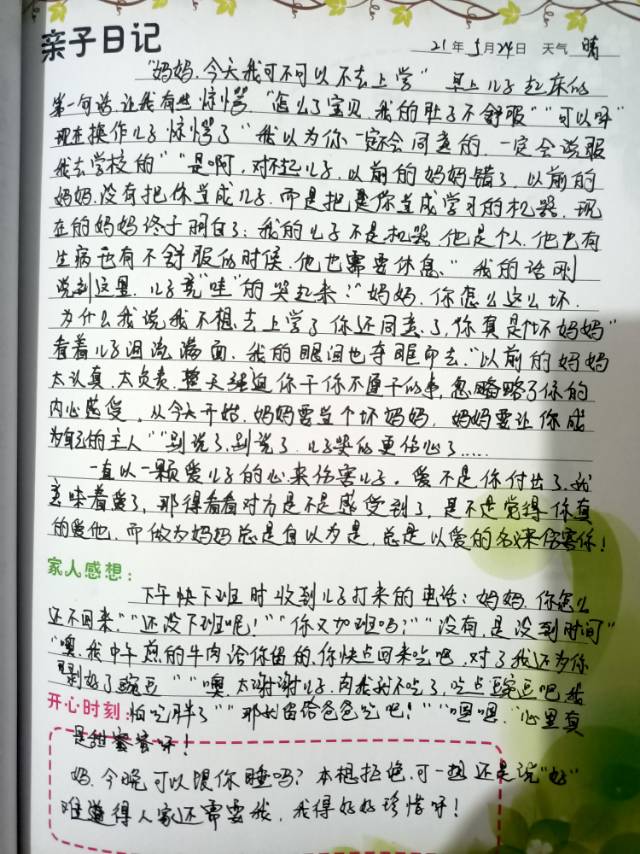 亲子日记
21年5月24日 天气 晴
"妈妈,今天我可不可以不去上学" 早上儿子起床的
第一句话,让我有些惊愕 "怎么了宝贝,我的肚子不舒服" "可以呀"
现在换作儿子惊愕了 "我以为你一定不会同意的,一定会说服
我去学校的" "是啊,对不起儿子,以前的妈妈错了,以前的
妈妈,没有把你当成儿子,而是把是你当成学习的机器,现
在的妈妈终于明白了:我的儿子不是机器,他是个人,他也有
生病也有不舒服的时候,他也需要休息." 我的话刚
说到这里,儿子竟"哇"的哭起来:"妈妈,你怎么这么坏,
为什么我说我不想去上学了你还同意了,你真是坏妈妈"
看着儿子泪流满面,我的眼泪也夺眶而去."以前的妈妈
太认真,太负责,整天强迫你干你不愿干的事,忽略略了你的
内心感受,从今天开始,妈妈要当个坏妈妈,妈妈要让你成
为自己的主人" "别说了,别说了,儿子哭的更伤心了.....
一直以一颗爱儿子的心来伤害儿子,爱不是你付出了,就
意味着爱了,那得看看对方是不是感受到了,是不是觉得你真
的爱他,而做为妈妈总是自以为是,总是以爱的名义来伤害你!
家人感想:
下午快下班时收到儿子打来的电话:妈妈,你怎么
还不回来" "还没下班呢!" "你又加班吗?" "没有,是没到时间"
"噢,我中午煎的牛肉给你留的,你快点回来吃吧,对了我还为你
剥好了豌豆" "噢,太谢谢儿子,肉我就不吃了,吃点豌豆吧,我
开心时刻:怕吃胖了" "那就留给爸爸吃吧!" "嗯嗯,"心里真
是甜蜜蜜呀!
妈,今晚可以跟你睡吗?本想拒绝,可一想还是说"好"
难道得人家还需要我,我得好好珍惜呀!